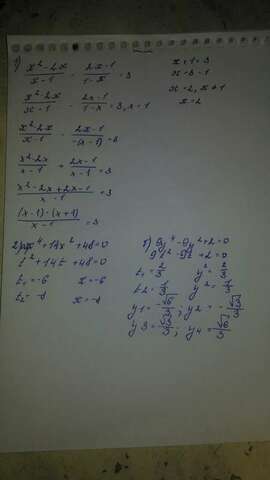 1) (x²-2x)/(x-1) - (2x-1)/(1-x) = 3
(x²-2x)/(x-1) - (2x-1)/(1-x) = 3, x≠1
(x²-2x)/(x-1) - (2x-1)/(-(x-1)) = 3
(x²-2x)/(x-1) + (2x-1)/(x-1) = 3
(x²-2x+2x-1)/(x-1) = 3
((x-1)·(x+1))/(x-1) = 3
x+1=3
x=3-1
x=2, x≠1
x=2
2) x⁴+14x²+48=0
t²+14t+48=0
t₁=-6 x=-6
t₂=-8 x=-8
б) 9y⁴-9y²+2=0
9t²-9t+2=0
t₁=2/3 y²=2/3
t2=1/3 y²=1/3
y1=-√6/3; y2=-√3/3
y3=√3/3; y4=√6/3